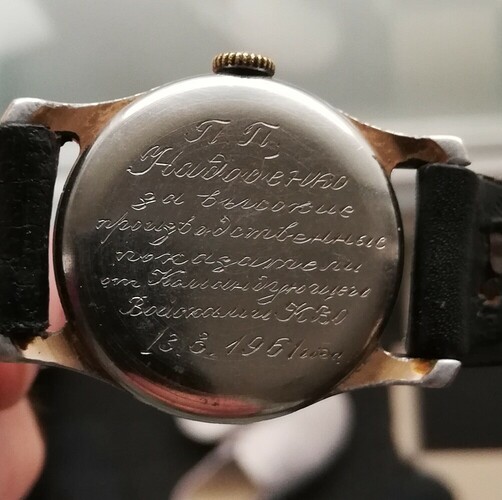 П. П.
Надоенко
за высокие
производственные
показатели
от Командующего
Войсками КВО
13.8.1961 года